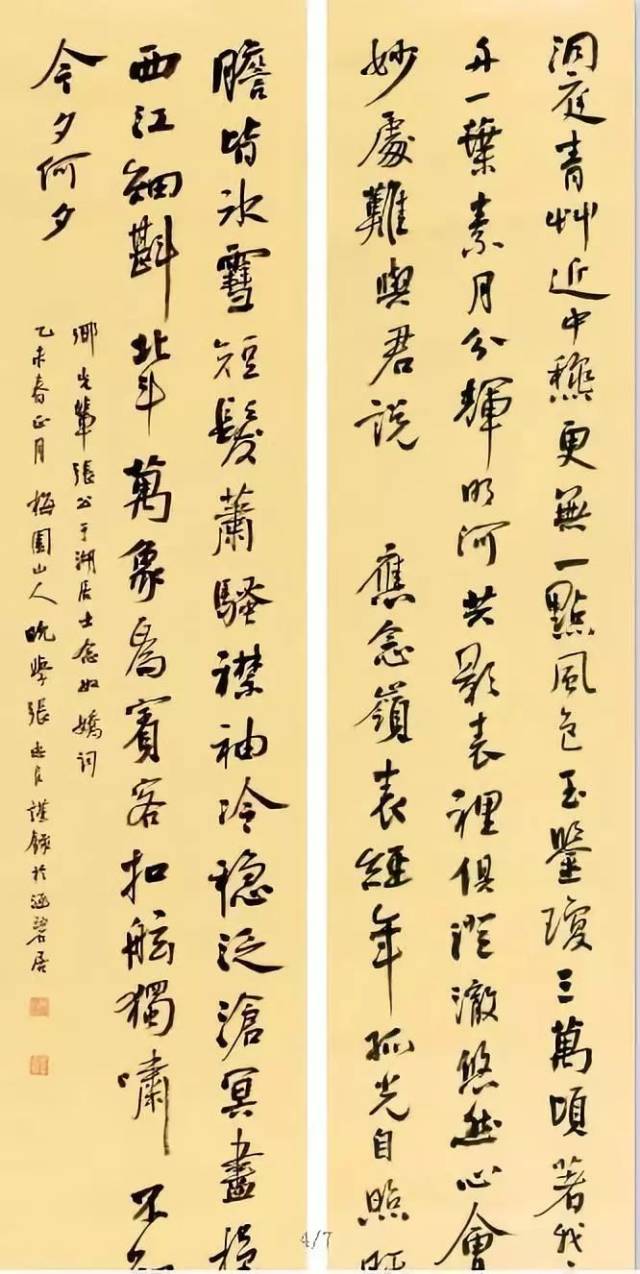 洞庭青艸近中穐更無一點風色玉鑒瓊三萬頃著我
舟一葉素月分輝明河共影表裡俱澄澈悠然心會
妙處難與君說 應念嶺表經年孤光自照肝
膽皆冰雪短髮蕭騷襟袖冷穩泛滄冥盡挹
西江細斟北斗萬象為賓客扣舷獨嘯不知
今夕何夕
鄉先輩張公于湖居士念奴嬌詞
乙未春正月梅園山人晚學張謹錄於涵碧居
4/7